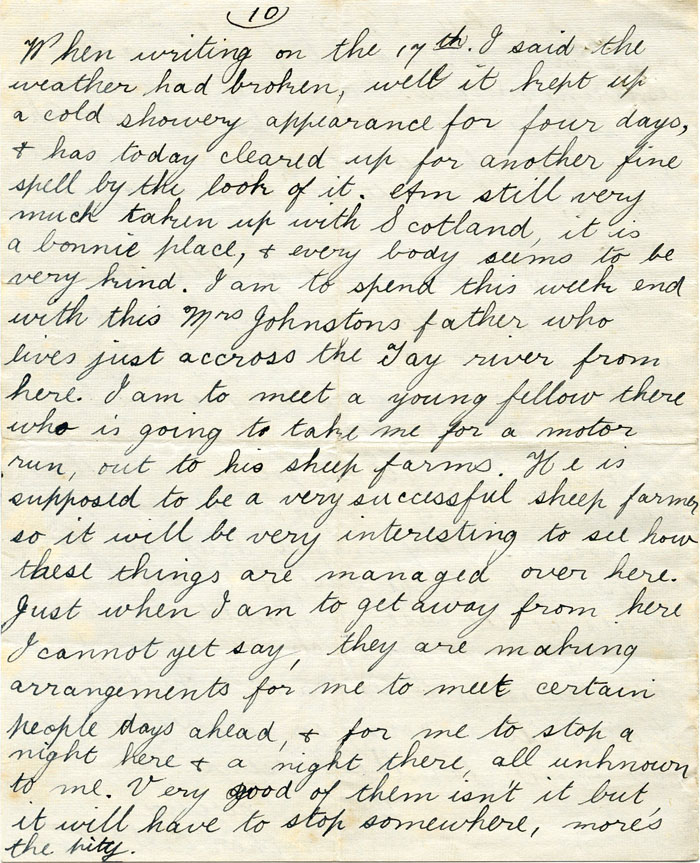 10
When writing on the 17th. I said the
weather had broken, well it kept up
a cold showery appearance for four days,
& has today cleared up for another fine
spell by the look of it. Am still very
much taken up with Scotland, it is
a bonnie place, & every body seems to be
very kind. I am to spend this week end
with this Mrs Johnstons father who
lives just accross the Tay river from
here. I am to meet a young fellow there
who is going to take me for a motor
run, out to his sheep farms. He is
supposed to be a very successful sheep farmer
so it will be very interesting to see how
these things are managed over here.
Just when I am to get away from here
I cannot yet say, they are making
arrangements for me to meet certain
people days ahead, & for me to stop a
night here & a night there, all unknown
to me. Very good of them isn't it but,
it will have to stop somewhere, more's
the pity.